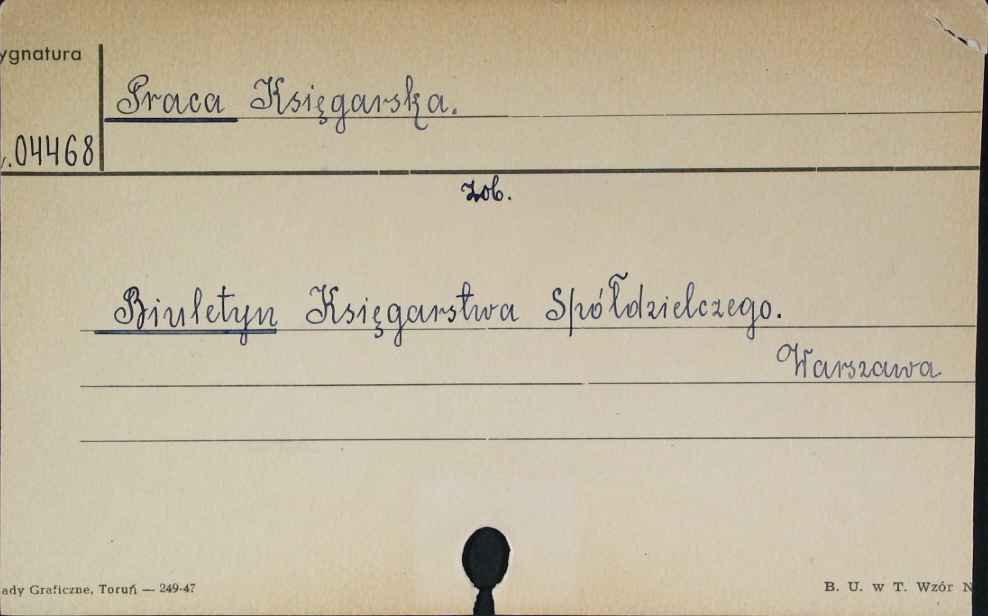 ygnatura
Praca Księgarska.
.04468
zob.
Biuletyn Księgarstwa Spółdzielczego.
Warszawa
ady Graficzne, Toruń — 249-47
B. U. w T. Wzór N